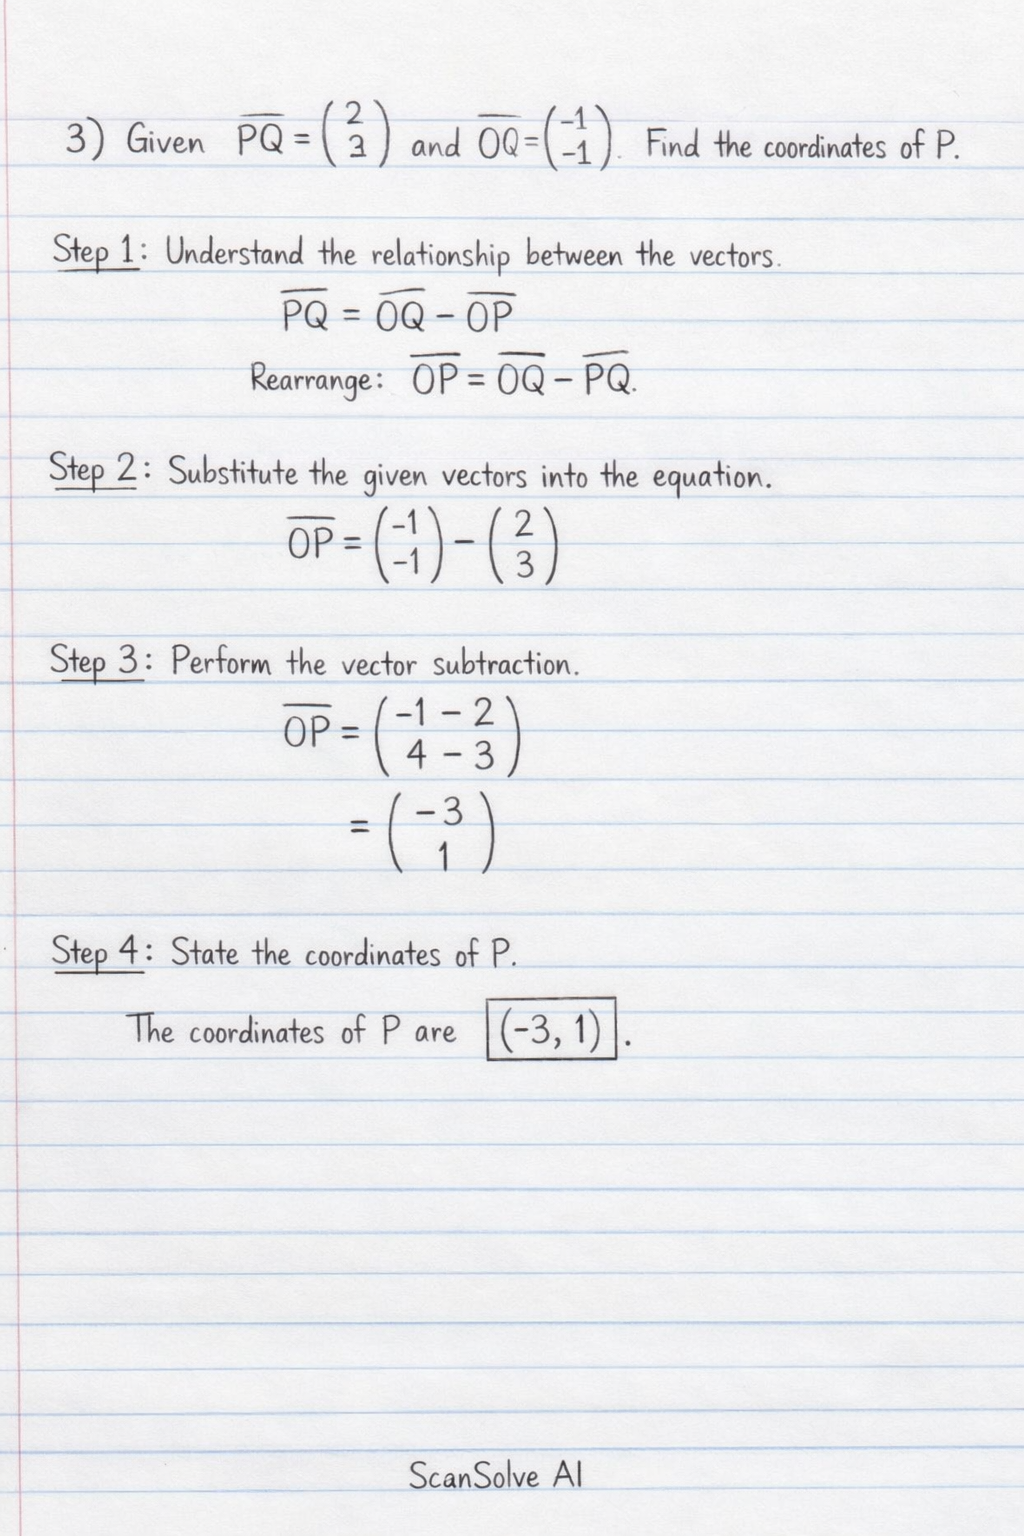 3) Given PQ = (2 3) and OQ = (-1 -1). Find the coordinates of P.
Step 1: Understand the relationship between the vectors.
PQ = OQ - OP
Rearrange: OP = OQ - PQ.
Step 2: Substitute the given vectors into the equation.
OP = (-1 -1) - (2 3)
Step 3: Perform the vector subtraction.
OP = (-1 - 2 4 - 3)
= (-3 1)
Step 4: State the coordinates of P.
The coordinates of P are (-3, 1).
ScanSolve AI